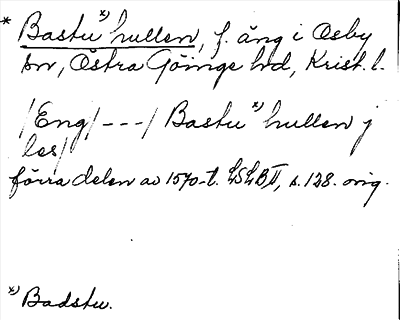 * Bastu *) hullen, f. äng i Osby
sn, Östra Göinge hd, Krist. l.
/Eng/ - - - / Bastu *) hullen j
les/
förra delen av 1570-t. LSLB II, s. 128. orig.
*) Badstu.